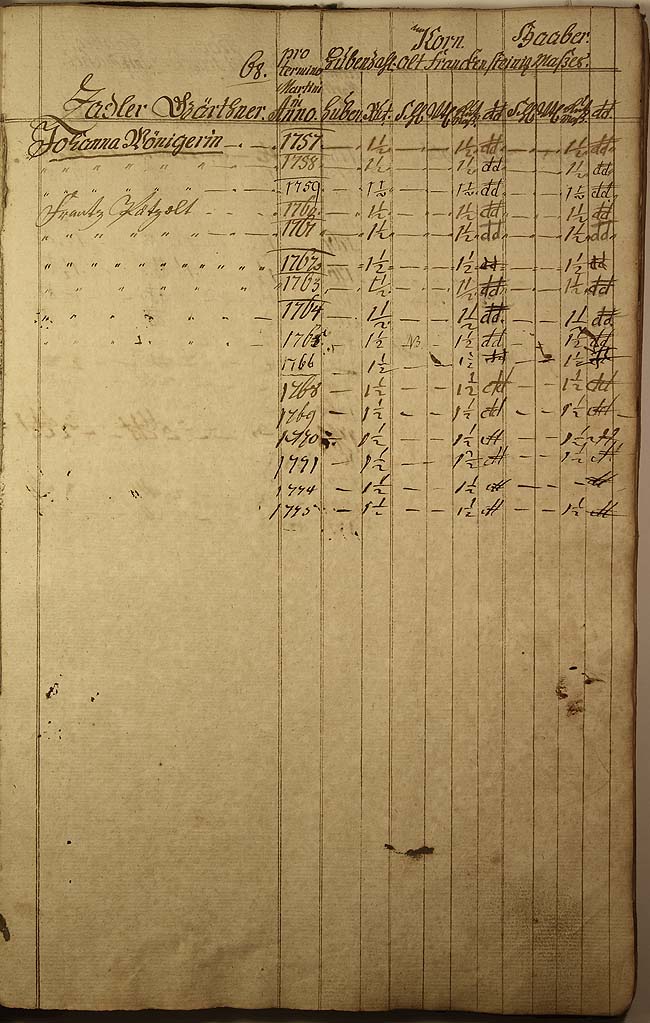 68. pro Korn. Haaber
termino Hubenzahl. Alt Franckensteiner Maßes.
Martini
in
Zadler Gärthner. Anno. Huben.
Johanna Königerin — 1757 — 1½ — — 1½ dd — — 1½ dd
" " " 1758 — 1½ — — 1½ dd — — 1½ dd
" " " 1759 — 1½ — — 1½ dd — — 1½ dd
Frantz Katzolt — 1760 — 1½ — — 1½ dd — — 1½ dd
" " " 1761 — 1½ — — 1½ dd — — 1½ dd
" " " 1762 — 1½ — — 1½ dd — — 1½ dd
" " " 1763 — 1½ — — 1½ dd — — 1½ dd
" " " 1764 — 1½ — — 1½ dd — — 1½ dd
" " " 1765 — 1½ — — 1½ dd — — 1½ dd
1766 — 1½ — — 1½ dd — — 1½ dd
1768 — 1½ — — 1½ dd — — 1½ dd
1769 — 1½ — — 1½ dd — — 1½ dd
1770 — 1½ — — 1½ dd — — 1½ dd
1771 — 1½ — — 1½ dd — — 1½ dd
1774 — 1½ — — 1½ dd — — — dd
1775 — 1½ — — 1½ dd — — 1½ dd